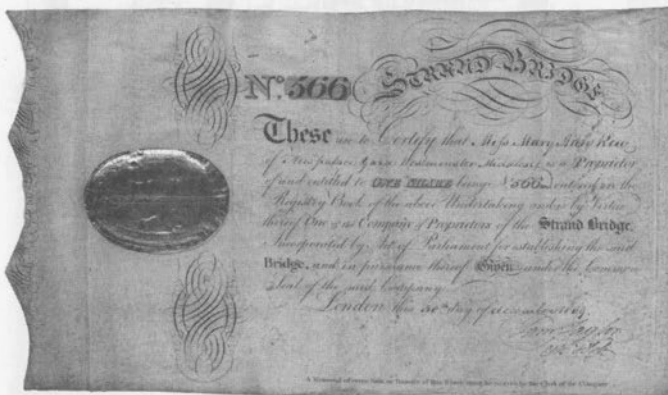 No. 566 STRAND BRIDGE
These are to Certify that Miss Mary
of New palace Yard Westminster Middlesex is a Proprietor
of and entitled to ONE SHARE being No. 566 entered in the
Registry Book of the above Undertaking under by Virtue
thereof One of the Company of Proprietors of the Strand Bridge,
Incorporated by Act of Parliament for establishing the said
Bridge, and in pursuance thereof Given under the Common
Seal of the said Company
London this 30th Day of
A Memorial of every Sale or Transfer of this Share must be by the Clerk of the Company